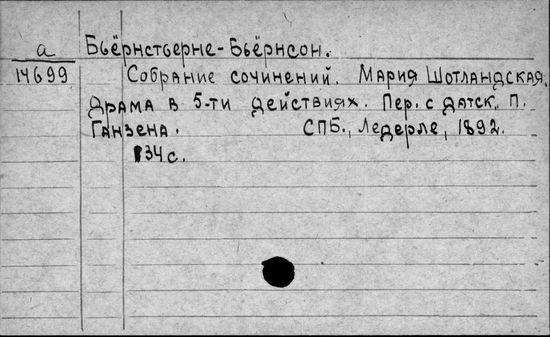 а Бьёрнстьерне-Бьёрнсон.
14699 Собрание сочинений. Мария Шотландская.
Драма в 5-ти действиях. Пер. с датск. П.
Ганзена. СПБ., Ледерле, 1892.
134 с.